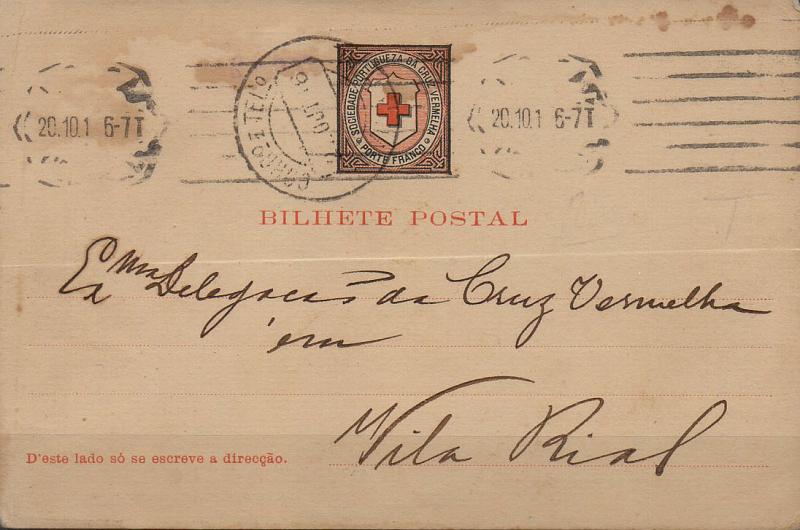 20.10.1 6-7T
SOCIEDADE PORTUGUEZA DA CRUZ VERMELHA
PORTE FRANCO
20.10.1 6-7T
BILHETE POSTAL
Exma Delegacas da Cruz Vermelha
em
Vila Rial
D'este lado só se escreve a direcção.